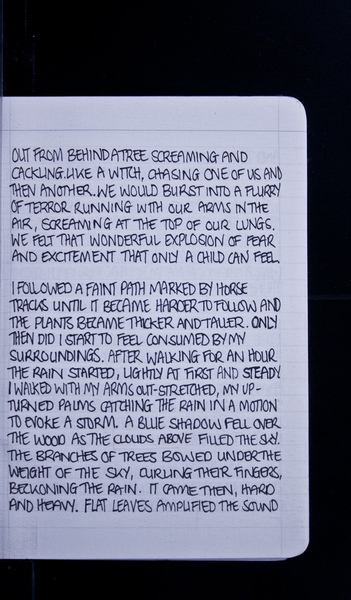 OUT FROM BEHIND A TREE SCREAMING AND
CACKLING. LIKE A WITCH, CHASING ONE OF US AND
THEN ANOTHER. WE WOULD BURST INTO A FLURRY
OF TERROR RUNNING WITH OUR ARMS IN THE
AIR, SCREAMING AT THE TOP OF OUR LUNGS.
WE FELT THAT WONDERFUL EXPLOSION OF FEAR
AND EXCITEMENT THAT ONLY A CHILD CAN FEEL.
I FOLLOWED A FAINT PATH MARKED BY HORSE
TRACKS UNTIL IT BECAME HARDER TO FOLLOW AND
THE PLANTS BECAME THICKER AND TALLER. ONLY
THEN DID I START TO FEEL CONSUMED BY MY
SURROUNDINGS. AFTER WALKING FOR AN HOUR
THE RAIN STARTED, LIGHTLY AT FIRST AND STEADY
I WALKED WITH MY ARMS OUT-STRETCHED, MY UP-
TURNED PALMS CATCHING THE RAIN IN A MOTION
TO EVOKE A STORM. A BLUE SHADOW FELL OVER
THE WOOD AS THE CLOUDS ABOVE FILLED THE SKY.
THE BRANCHES OF TREES BOWED UNDER THE
WEIGHT OF THE SKY, CURLING THEIR FINGERS,
BECKONING THE RAIN. IT CAME THEN, HARD
AND HEAVY. FLAT LEAVES AMPLIFIED THE SOUND